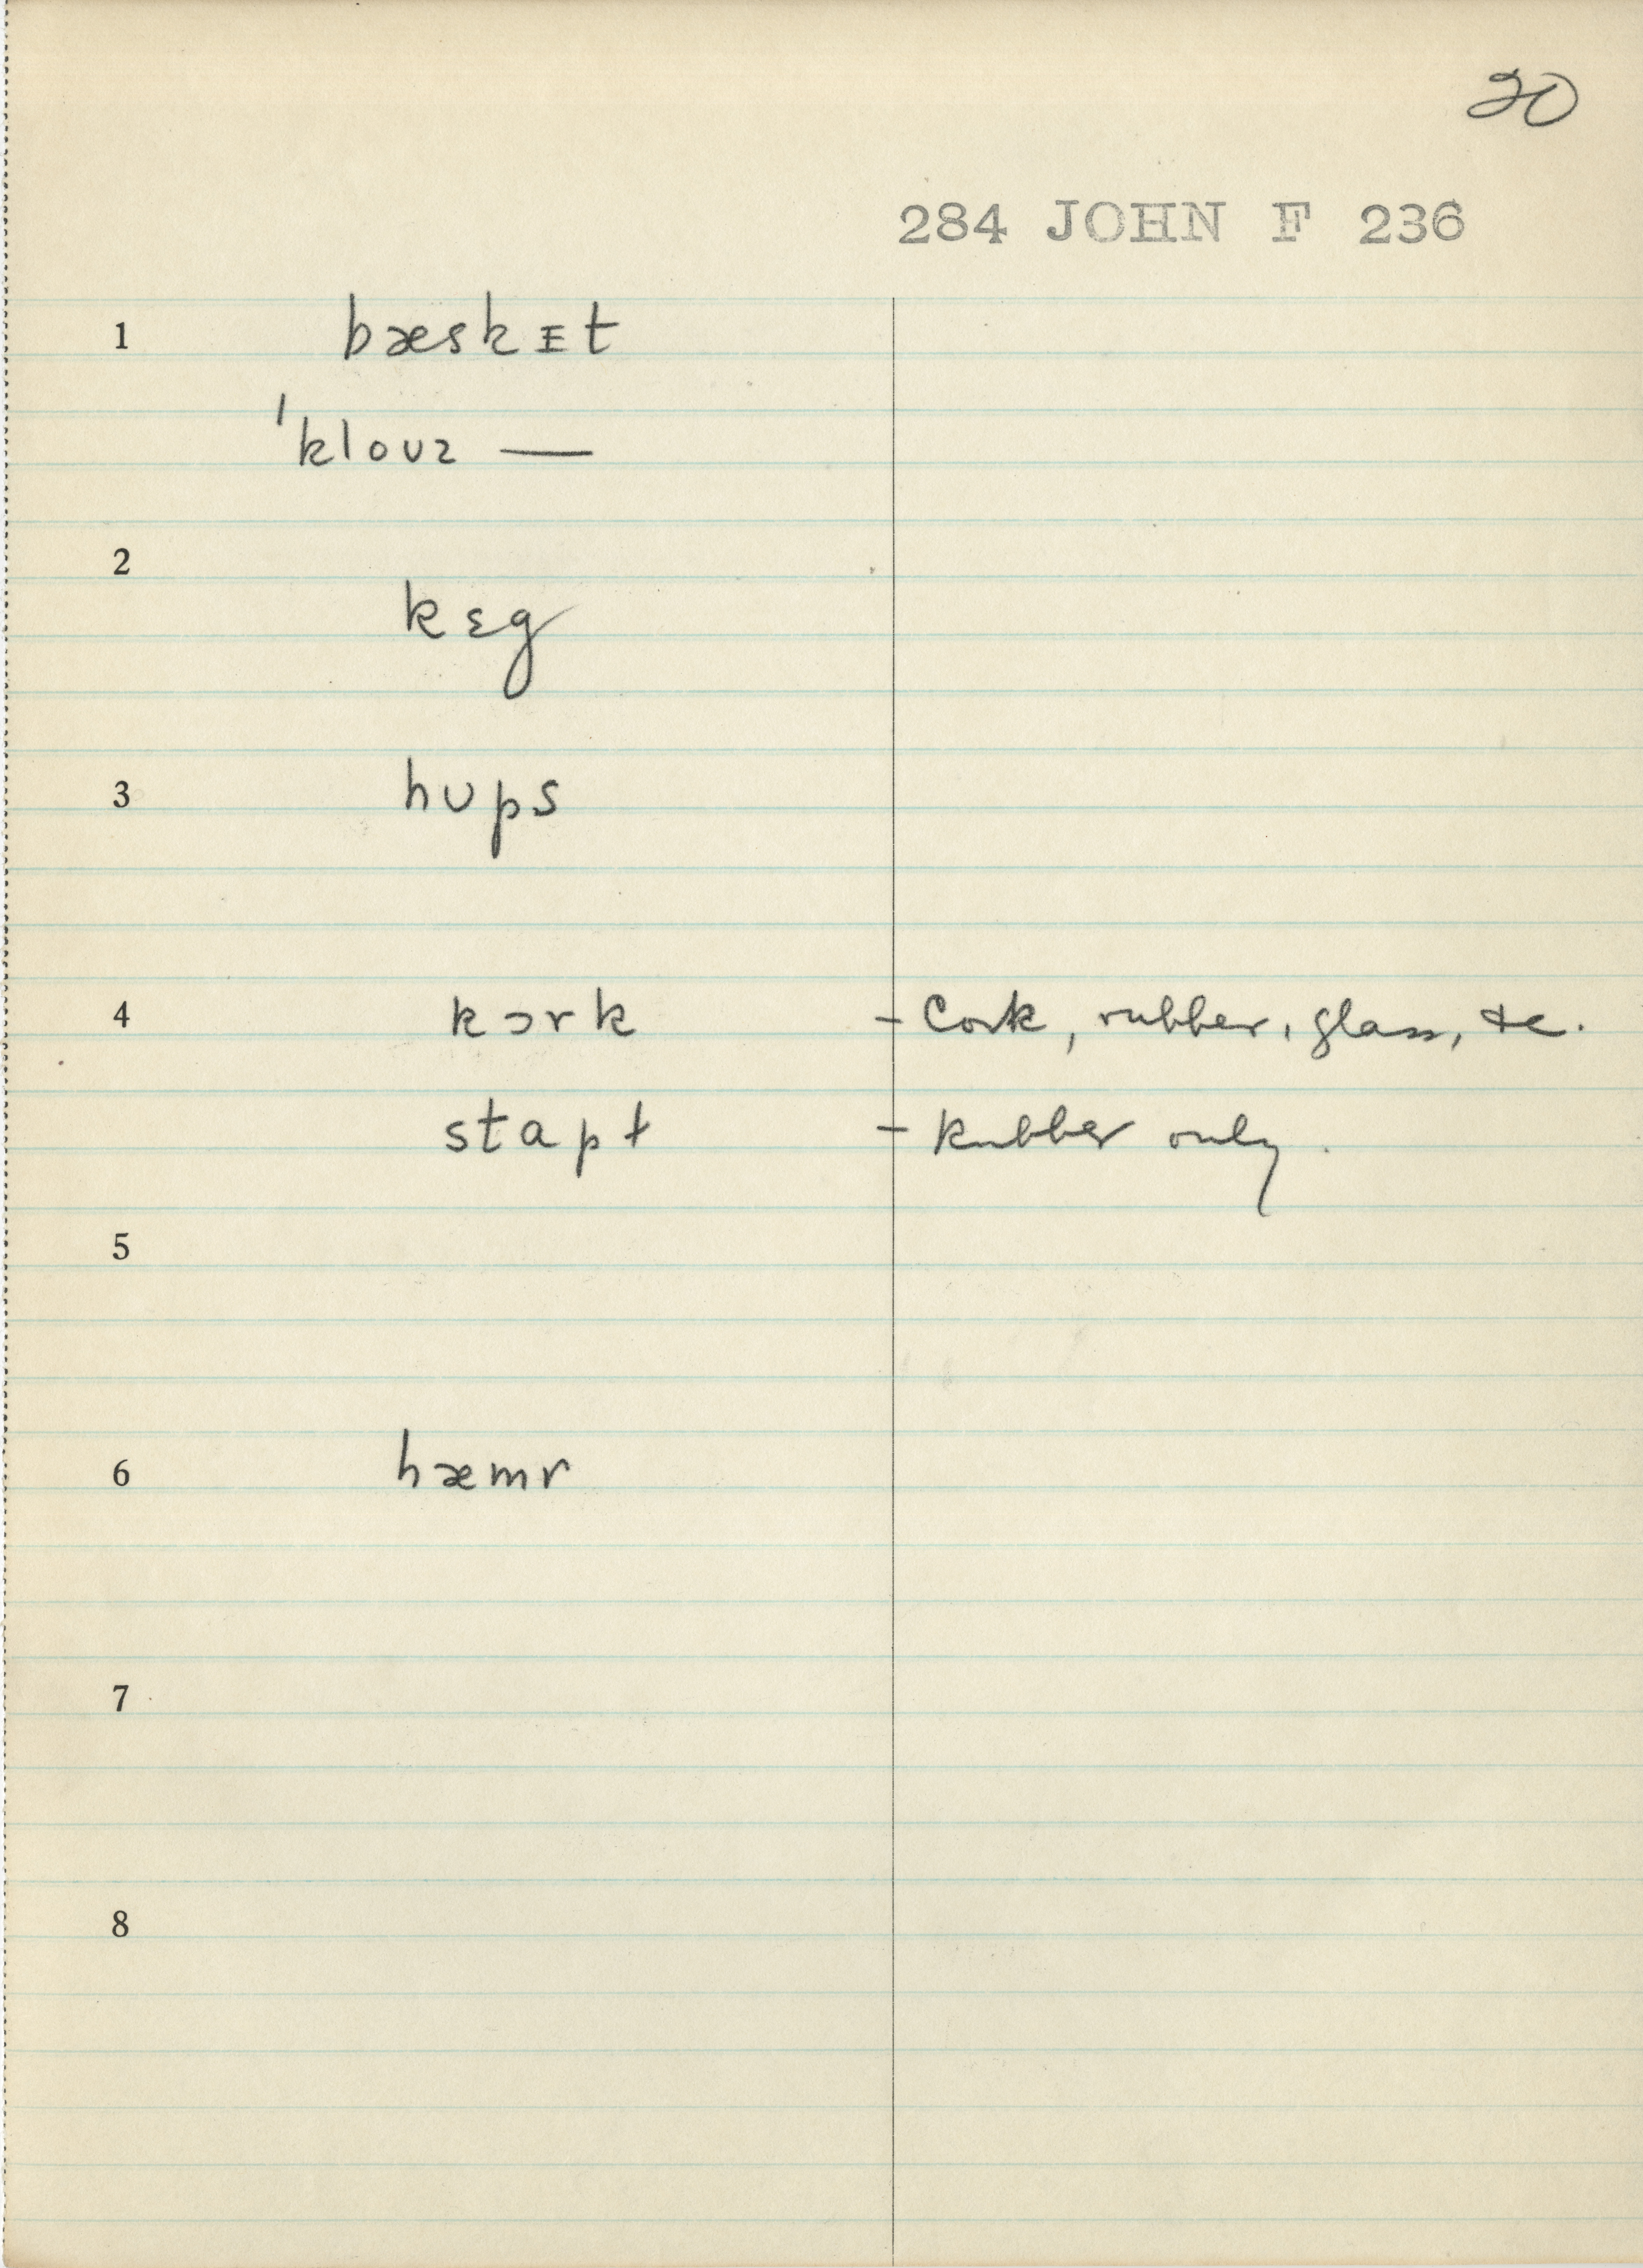 20
284 JOHN F 236
1 bæskɪt
ˈkloʊz —
2
kɛg
3 hʊps
4 kɔrk – Cork, rubber, glass, &c.
stapɫ – Rubber only.
5
6 hæmr
7
8